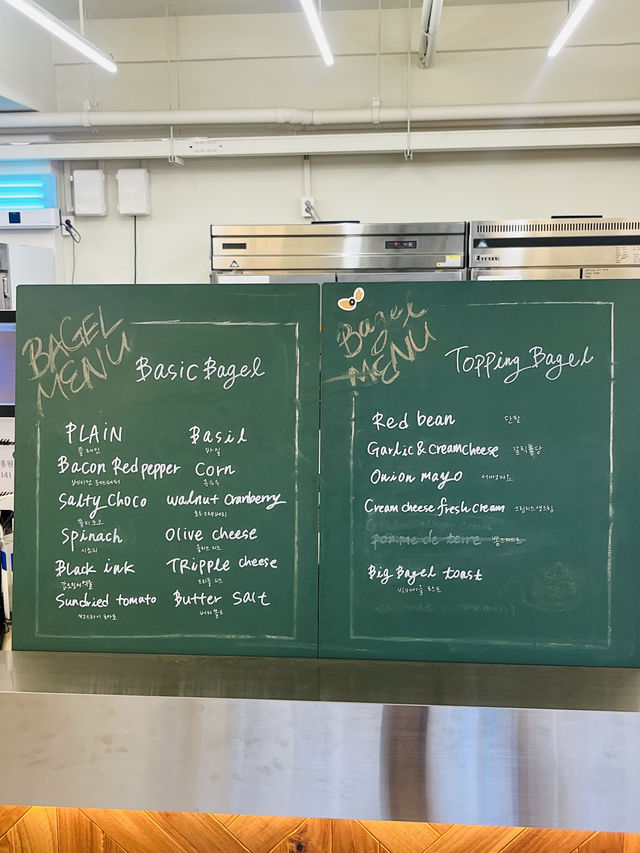 BAGEL
MENU
Basic Bagel
PLAIN
플레인
Bacon Red pepper
Salty Choco
솔티 초코
Spinach
시금치
Black ink
Sundried tomato
썬드라이 토마토
Basil
바질
Corn
옥수수
Walnut Cranberry
Olive cheese
올리브 치즈
TRipple cheese
트리플 치즈
Butter Salt
버터 솔트
Bagel
MENU
Topping Bagel
Red bean
단팥
Garlic & Cream cheese
Onion mayo
어니언마요
Cream cheese fresh cream
크림치즈생크림
pomme de terre
뽐므데떼르
Big Bagel toast
빅베이글 토스트